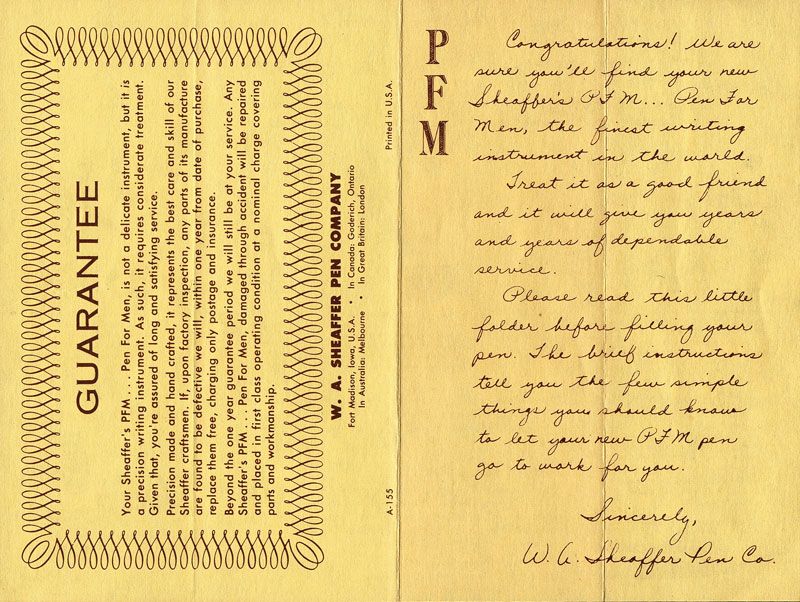 GUARANTEE
Your Sheaffer's PFM . . . . Pen For Men, is not a delicate instrument, but it is
a precision writing instrument. As such, it requires considerate treatment.
Given that, you're assured of long and satisfying service.
Precision made and hand crafted, it represents the best care and skill of our
Sheaffer craftsmen. If, upon factory inspection, any parts of its manufacture
are found to be defective we will, within one year from date of purchase,
replace them free, charging only postage and insurance.
Beyond the one year guarantee period we will still be at your service. Any
Sheaffer's PFM . . . . Pen For Men, damaged through accident will be repaired
and placed in first class operating condition at a nominal charge covering
parts and workmanship.
W. A. SHEAFFER PEN COMPANY
Fort Madison, Iowa, U.S.A. • In Canada: Goderich, Ontario
In Australia: Melbourne • In Great Britain: London
A-155 Printed in U.S.A.
PFM
Congratulations! We are
sure you'll find your new
Sheaffer's PFM... Pen For
Men, the finest writing
instrument in the world.
Treat it as a good friend
and it will give you years
and years of dependable
service.
Please read this little
folder before filling your
pen. The brief instructions
tell you the few simple
things you should know
to let your new PFM pen
go to work for you.
Sincerely,
W. A. Sheaffer Pen Co.